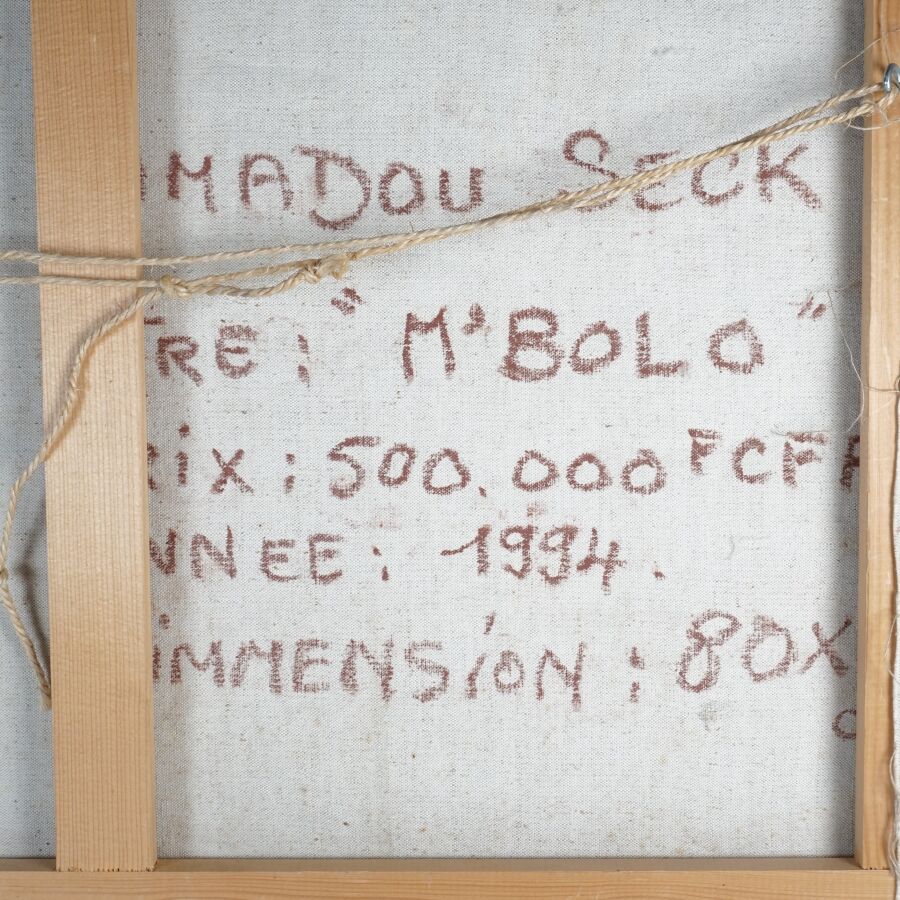 MADOU SECK
RE : "M'BOLO"
ix : 500.000 FCF
NNEE : 1994.
iMMENSiON : 80X